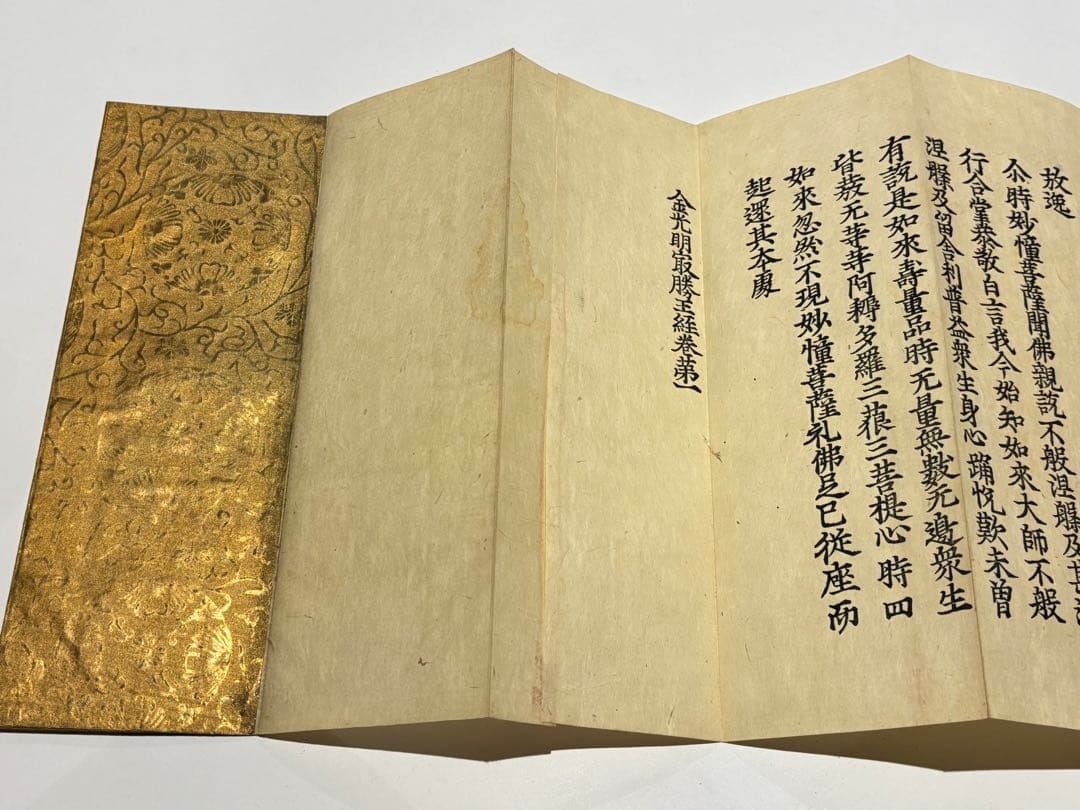 放逸
尒時妙憧菩薩聞佛親說不般涅槃及甚
行合掌恭敬白言我今始知如來大師不般
涅槃及留舍利普益衆生身心踊悅歎未曽
有說是如來壽量品時无量無數无邊衆生
皆發无等等阿耨多羅三藐三菩提心時四
如來忽然不現妙憧菩薩礼佛足已從座而
起還其夲處
金光明冣勝王経卷苐一